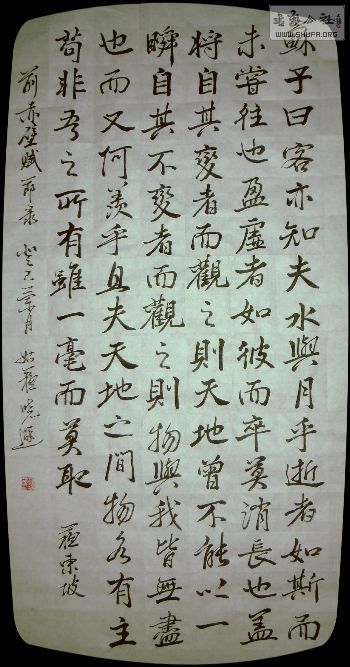 書藝公社
WWW.SHUFA.ORG
蘇子曰客亦知夫水與月乎逝者如斯而
未嘗往也盈虛者如彼而卒莫消長也蓋
將自其變者而觀之則天地曾不能以一
瞬自其不變者而觀之則物與我皆無盡
也而又何羨乎且夫天地之間物各有主
苟非吾之所有雖一毫而莫取 蘇東坡
前赤壁賦節录 癸巳 月 姑蘇